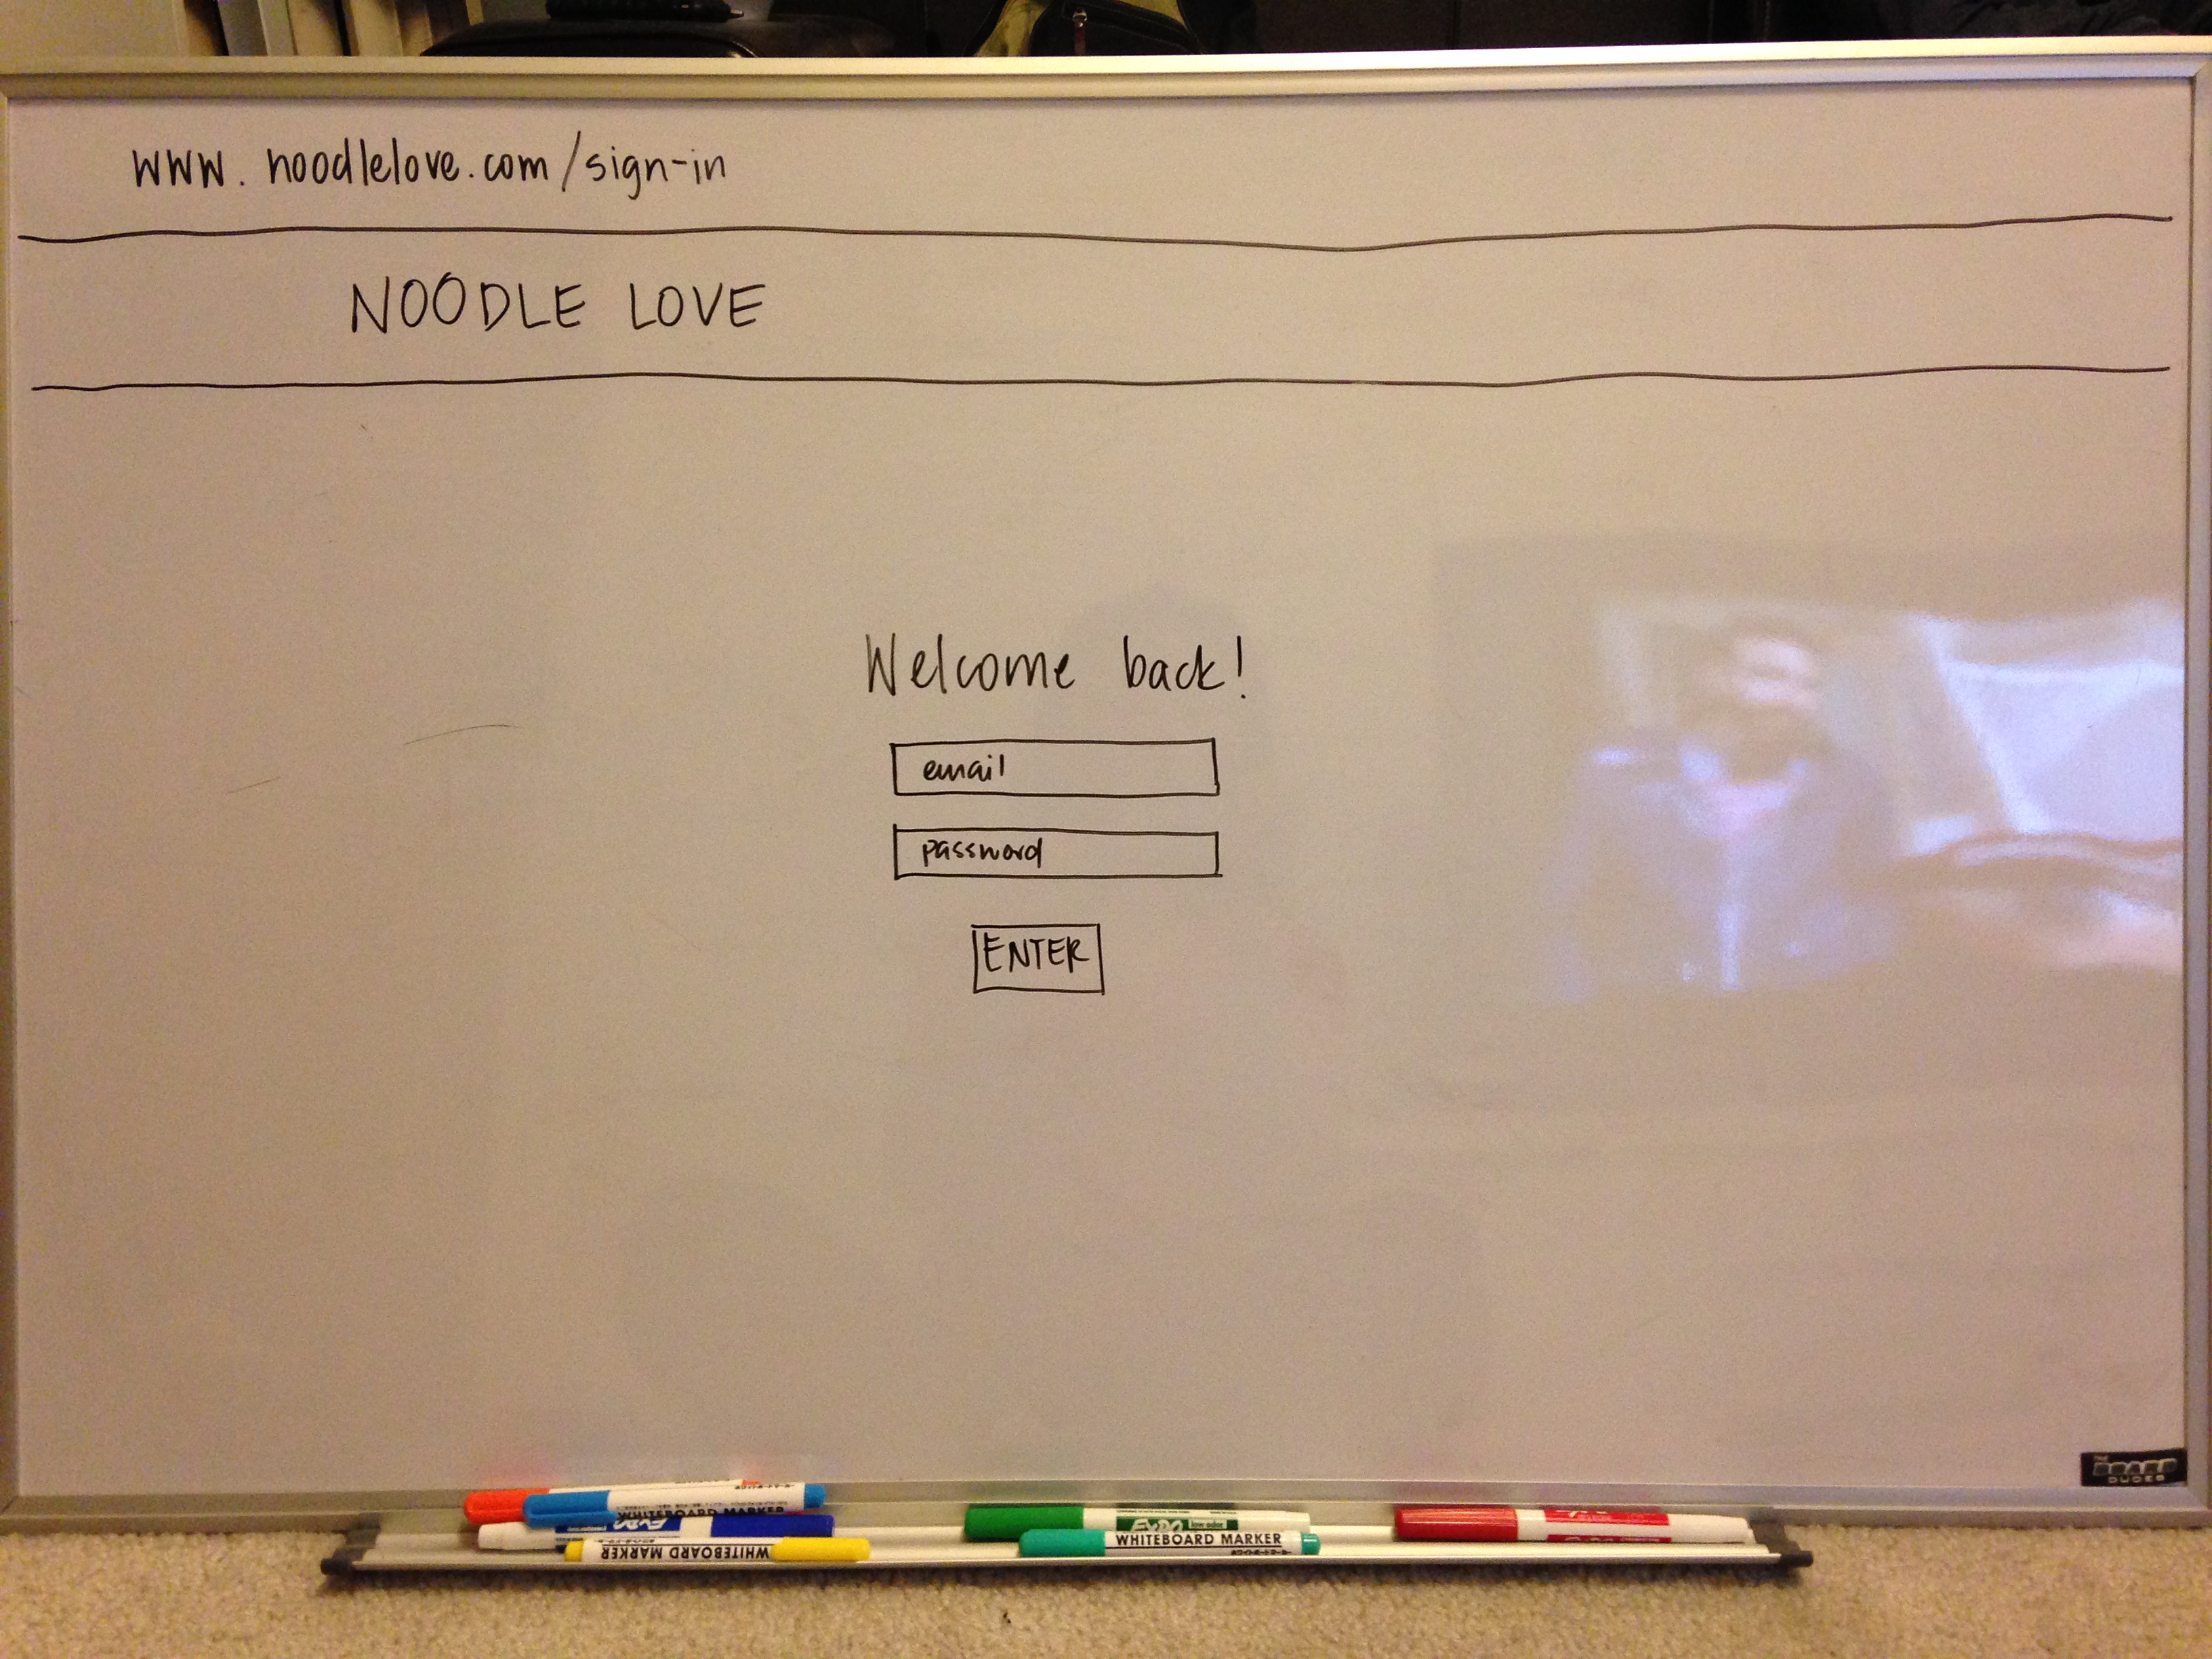 www.noodlelove.com/sign-in
NOODLE LOVE
Welcome back!
email
password
ENTER
THE
BOARD
DUDES
WHITEBOARD MARKER
EXPO
WHITEBOARD MARKER
EXPO
low odor
WHITEBOARD MARKER